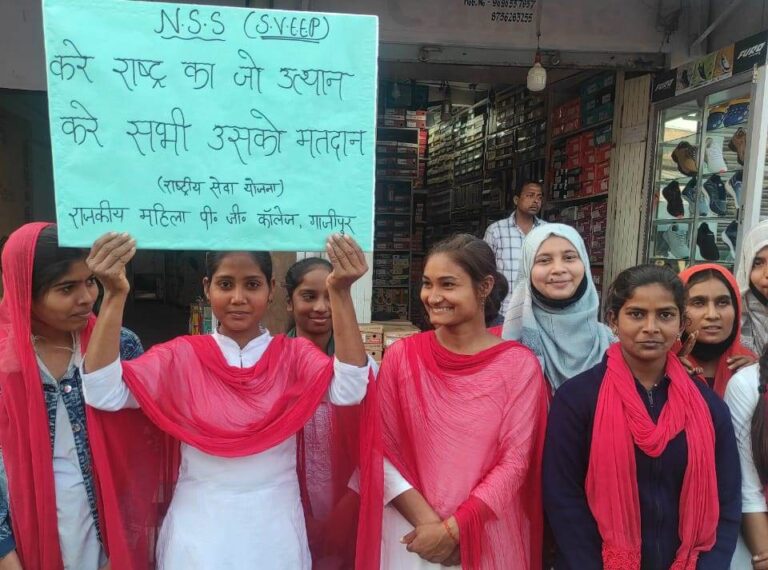 N.S.S (S.V.E.E.P)
करे राष्ट्र का जो उत्थान
करे सभी उसको मतदान
(राष्ट्रीय सेवा योजना)
राजकीय महिला पी० जी० कॉलेज, गाजीपुर
8736263255